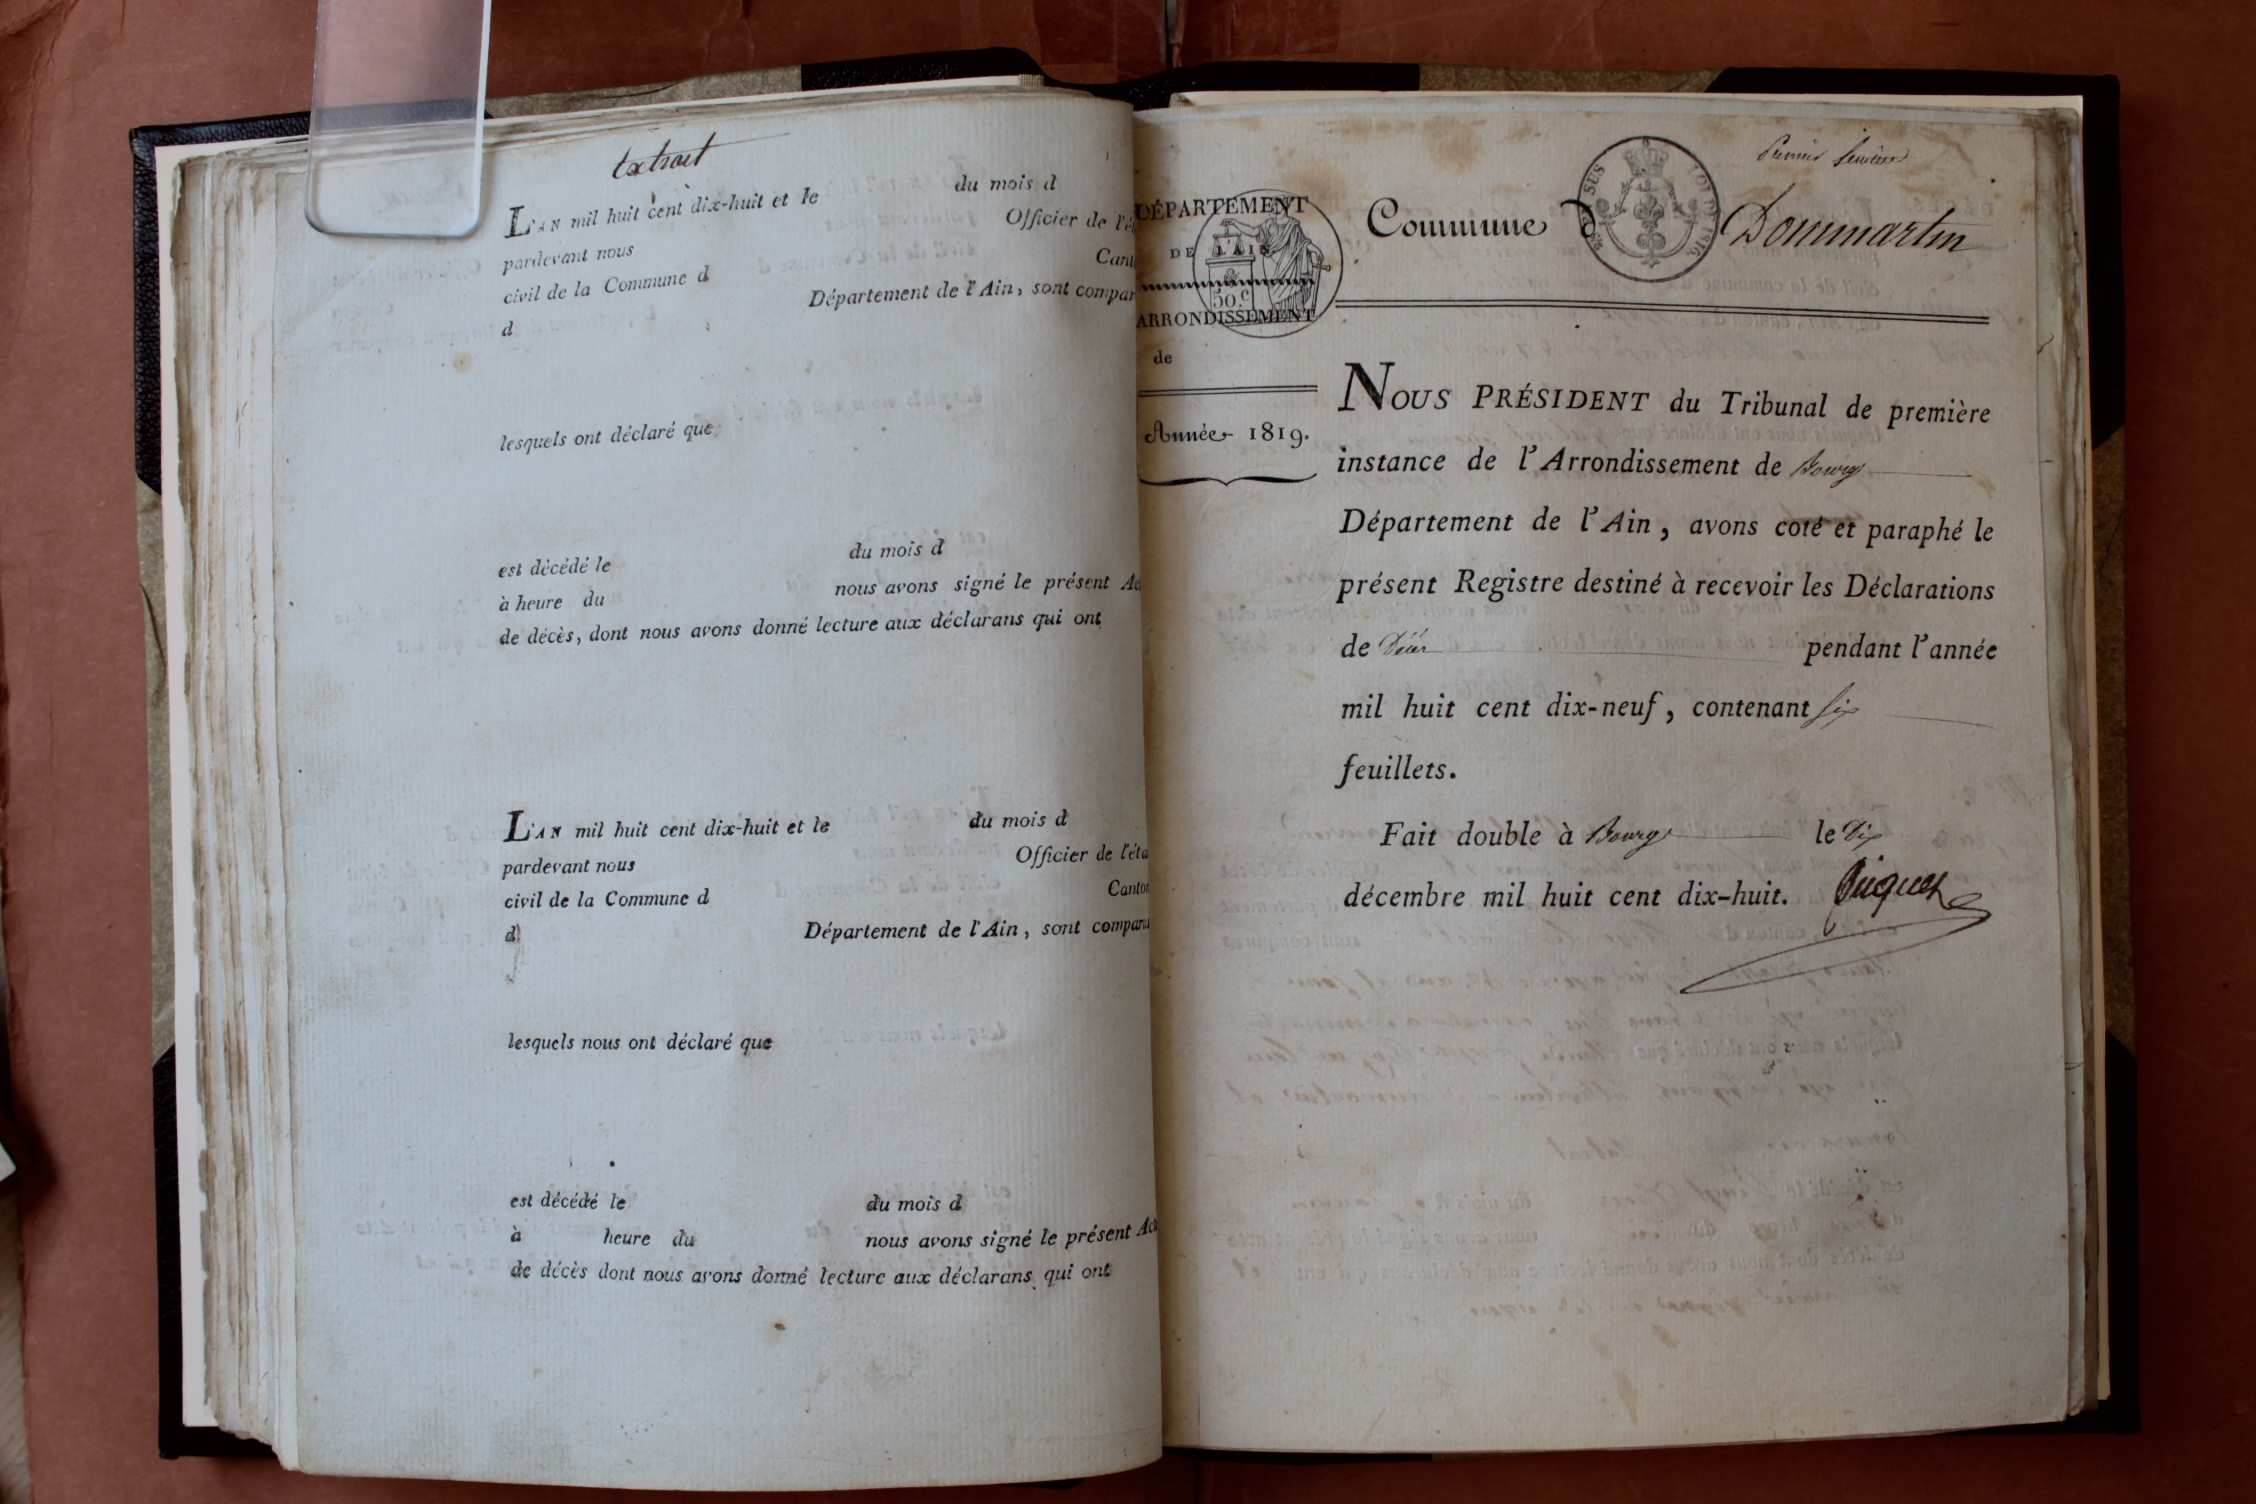 extrait
L'AN mil huit cent dix-huit et le du mois d
pardevant nous Officier de l'ét
civil de la Commune d Cant
d Département de l'Ain, sont compar
lesquels ont déclaré que
est décédé le du mois d
à heure du nous avons signé le présent Ac
de décès, dont nous avons donné lecture aux déclarans qui ont
L'AN mil huit cent dix-huit et le du mois d
pardevant nous Officier de l'éta
civil de la Commune d Canton
d Département de l'Ain, sont compara
lesquels nous ont déclaré que
est décédé le du mois d
à heure du nous avons signé le présent Act
de décès dont nous avons donné lecture aux déclarans qui ont
Premier
DÉPARTEMENT
DE L'AIN
50 c
ARRONDISSEMENT
de
Année 1819.
Commune d Dommartin
NOUS PRÉSIDENT du Tribunal de première
instance de l'Arrondissement de Bourg
Département de l'Ain, avons coté et paraphé le
présent Registre destiné à recevoir les Déclarations
de Décès pendant l'année
mil huit cent dix-neuf, contenant six
feuillets.
Fait double à Bourg le Dix
décembre mil huit cent dix-huit.